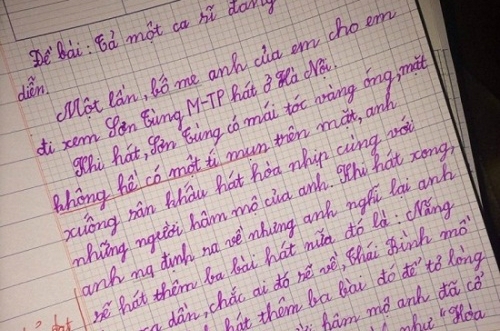 Đề bài: Tả một ca sĩ đang
diễn.
Một lần, bố mẹ anh của em cho em
đi xem Sơn Tùng M-TP hát ở Hà Nội.
Khi hát, Sơn Tùng có mái tóc vàng óng, mặt
không hề có một tí mụn trên mặt, anh
xuống sân khấu hát hòa nhịp cùng với
những người hâm mộ của anh. Khi hát xong,
anh ng định ra về nhưng anh nghĩ lại anh
sẽ hát thêm ba bài hát nữa đó là: Nắng
ấm xa dần, chắc ai đó sẽ về, Thái Bình mồ
hát thêm ba bài đó để tỏ lòng
hâm mộ anh đã cổ
như "Hòa